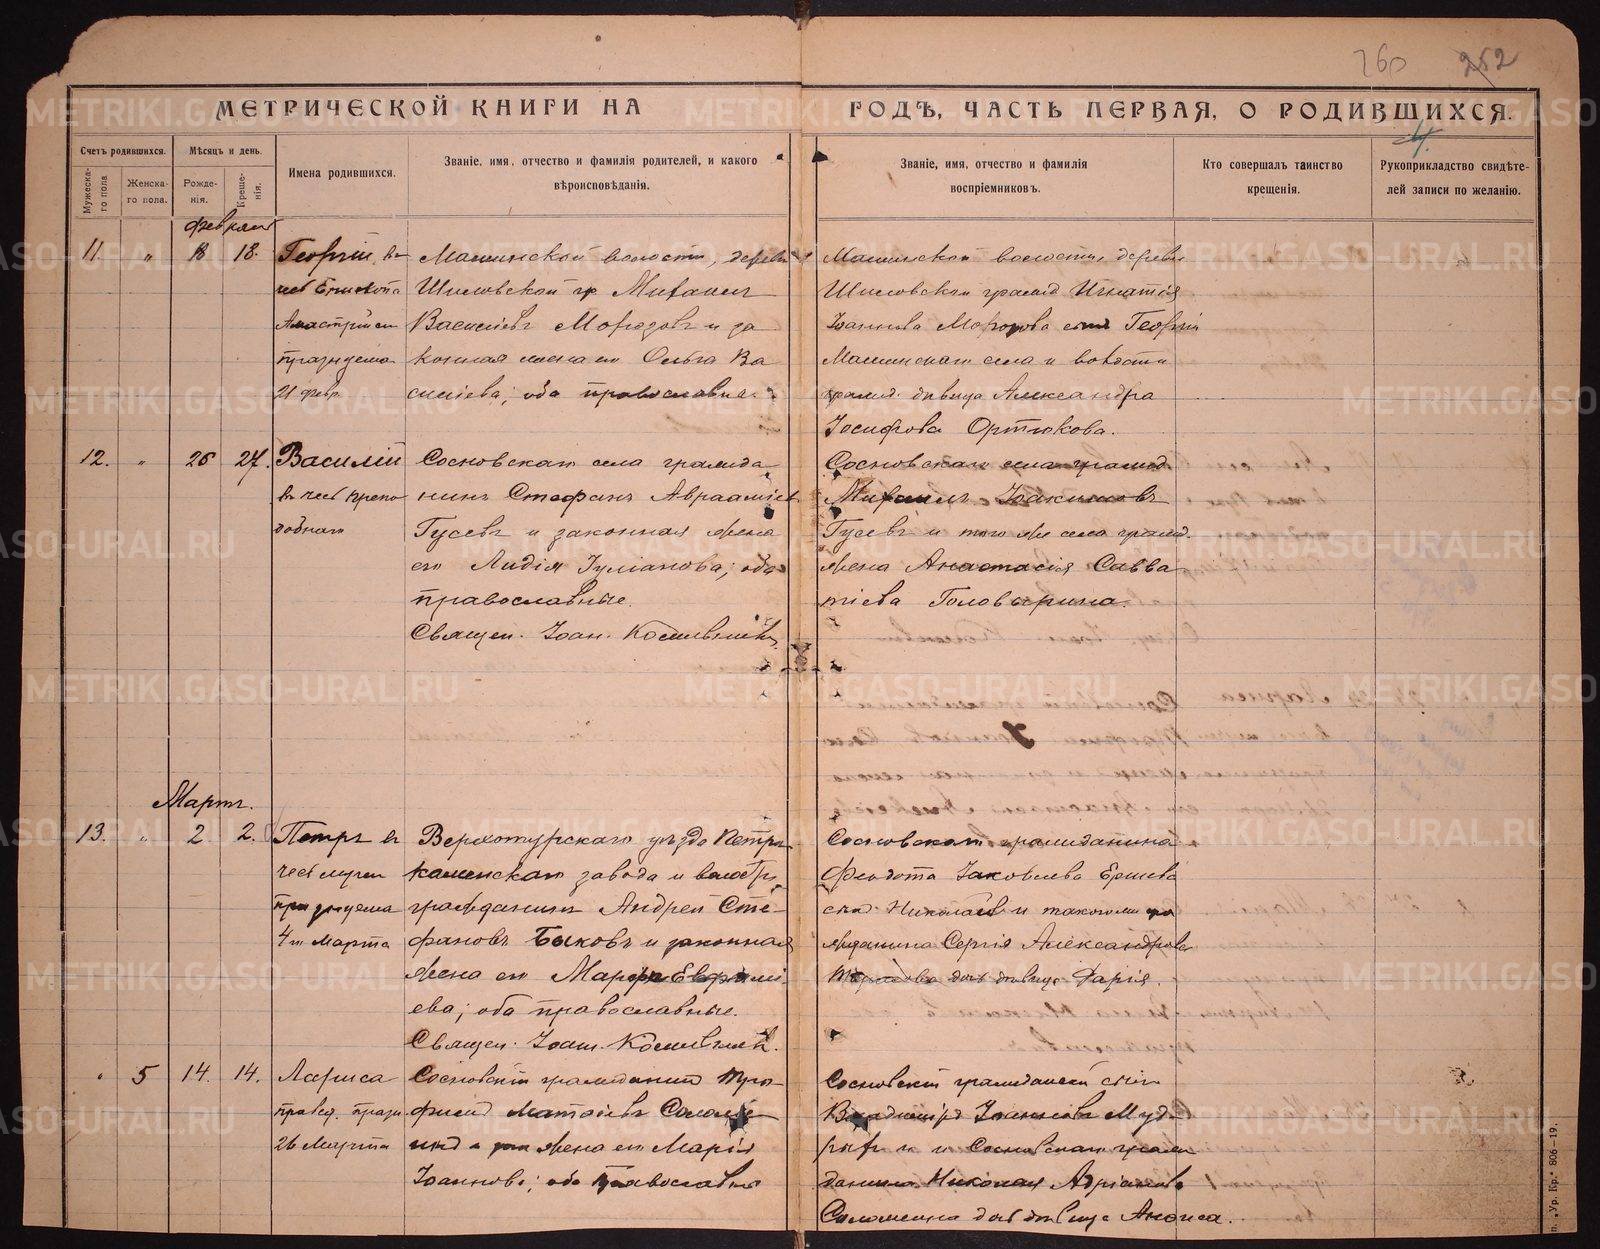 260 252
МЕТРИЧЕСКОЙ КНИГИ НА ГОДЪ, ЧАСТЬ ПЕРВАЯ, О РОДИВШИХСЯ.
4.
Счетъ родившихся.
Мужеска-
го пола
Женска-
го пола.
Мѣсяцъ и день.
Рожде-
нія.
Креще-
нія.
Имена родившихся.
Званіе, имя, отчество и фамилія родителей, и какого
вѣроисповѣданія.
Званіе, имя, отчество и фамилія
воспріемниковъ.
Кто совершалъ таинство
крещенія.
Рукоприкладство свидѣте-
лей записи по желанію.
Февраля
11. " 18 18.
Георгій въ
чест Епископа
празднуема
21 февр.
Маминской волости, деревни
Шиловской гр Михаилъ
Василіевъ Морозовъ и за
конная жена его Ольга Ва
силіева; оба православные.
Маминской волости, деревни
Шиловской гражд Игнатія
Іоаннова Морозова сынъ Георгій
Маминскаго села и волости
гражд. дѣвица Александра
Іосифова Ортюкова.
12. " 26 27.
Василій
въ чест препо
добнаго
Сосновскаго села гражда
нинъ Стефанъ Авраамиевъ
Гусевъ и законная жена
его Лидія Іуліанова; оба
православные.
Священ. Іоан.
Сосновскаго села гражд.
Михаилъ Іоакимовъ
Гусевъ и того же села гражд.
жена Анастасія Савва
тіева Головырина.
Мартъ.
13. " 2 2.
Петръ въ
чест мучен
празднуема
4го Марта
Верхотурскаго уѣзда Петро
каменскаго завода и волости
гражданинъ Андрей Сте-
фановъ Быковъ и законная
жена его Марфа Евфимі
ева; оба православные.
Священ. Іоан.
Сосновскаго гражданина
Феодота Іаковлева Ершева
сынъ Николай и такого же гра
жданина Сергія Александрова
доч дѣвица Дарія.
" 5 14. 14.
Лариса
правед. празн
26 Марта
Сосновскій гражданинъ Тро-
фимъ Матѳіевъ Соломе
инъ и зак жена его Марія
Іоаннова; оба православные
Сосновскій гражданскій сынъ
Владиміръ Іоанновъ Муд-
рыхъ и Сосновскаго граж
данина Николая Адріанова
Соломеина доч дѣвица Анфиса.
п. „Ур. Кр.“ 806—19.
METRIKI.GASO-URAL.RU